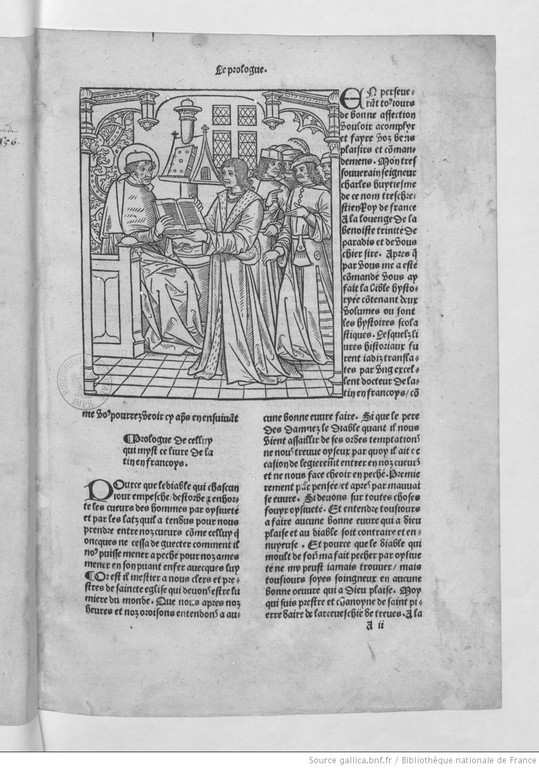 Le prologue.
EN perseue-
rãt to⁹iours
de bonne affection
vouloir acomplyr
et fayre voz bons
plaisirs et cõman-
demens. Mon tres
souuerain seigneur
charles huytiesme
de ce nom treschre-
stien Roy de france
A la louenge de la
benoiste trinite de
paradis et de vous
chier sire. Apres q̃
par vous me a este
cõmande vous ay
fait la bible hysto-
ryee cõtenant deux
volumes ou sont
les hystoires scola
stiques. Lesquelz li
ures historiaux fu
rent iadiz transla-
tes par vng excel-
lent docteur de la-
tin en francoys/cõ
me vo⁹ pourrez veoir cy ap̃s en ensuiuãt
¶Prologue de celluy
qui myst ce liure de la
tin en francoys.
POurce que le diable qui chascun
iour empesche/destorbe et enhor-
te les cueurs des hommes par oysiuete
et par les latz quil a tendus pour nous
prendre entre noz cueurs cõme celluy q̃
oncques ne cessa de guecter comment il
no⁹ puisse mener a peche pour noz ames
mener en son puant enfer auecques luy
¶Or est il mestier a nous clers et pre-
stres de saincte eglise qui deuons estre lu
miere du monde. Que nous apres noz
heures et noz oroisons entendons a au-
cune bonne euure faire. Si que le pere
des damnez le diable quant il nous
vient assaillir de ses ordes temptations
ne nous treuue oyseux par quoy il ait oc
casion de legierement entrer en noz cueurs
et ne nous face cheoir en peche. Premie
rement par pensee/et apres par mauuai
se euure. Si deuons sur toutes choses
fouyr oysiuete. Et entendre tousiours
a faire aucune bonne euure qui a dieu
plaise et au diable soit contraire et en-
nuyeuse. Et pource que le diable qui
moult de fois ma fait pecher par oysiue
te ne my peust iamais trouuer/mais
tousiours soyes soingneux en aucune
bonne oeuure qui a Dieu plaise. Moy
qui suis prestre et chanoyne de saint pi-
erre daire de larceueschie de treues. A la
A ii
Source gallica.bnf.fr / Bibliothèque nationale de France